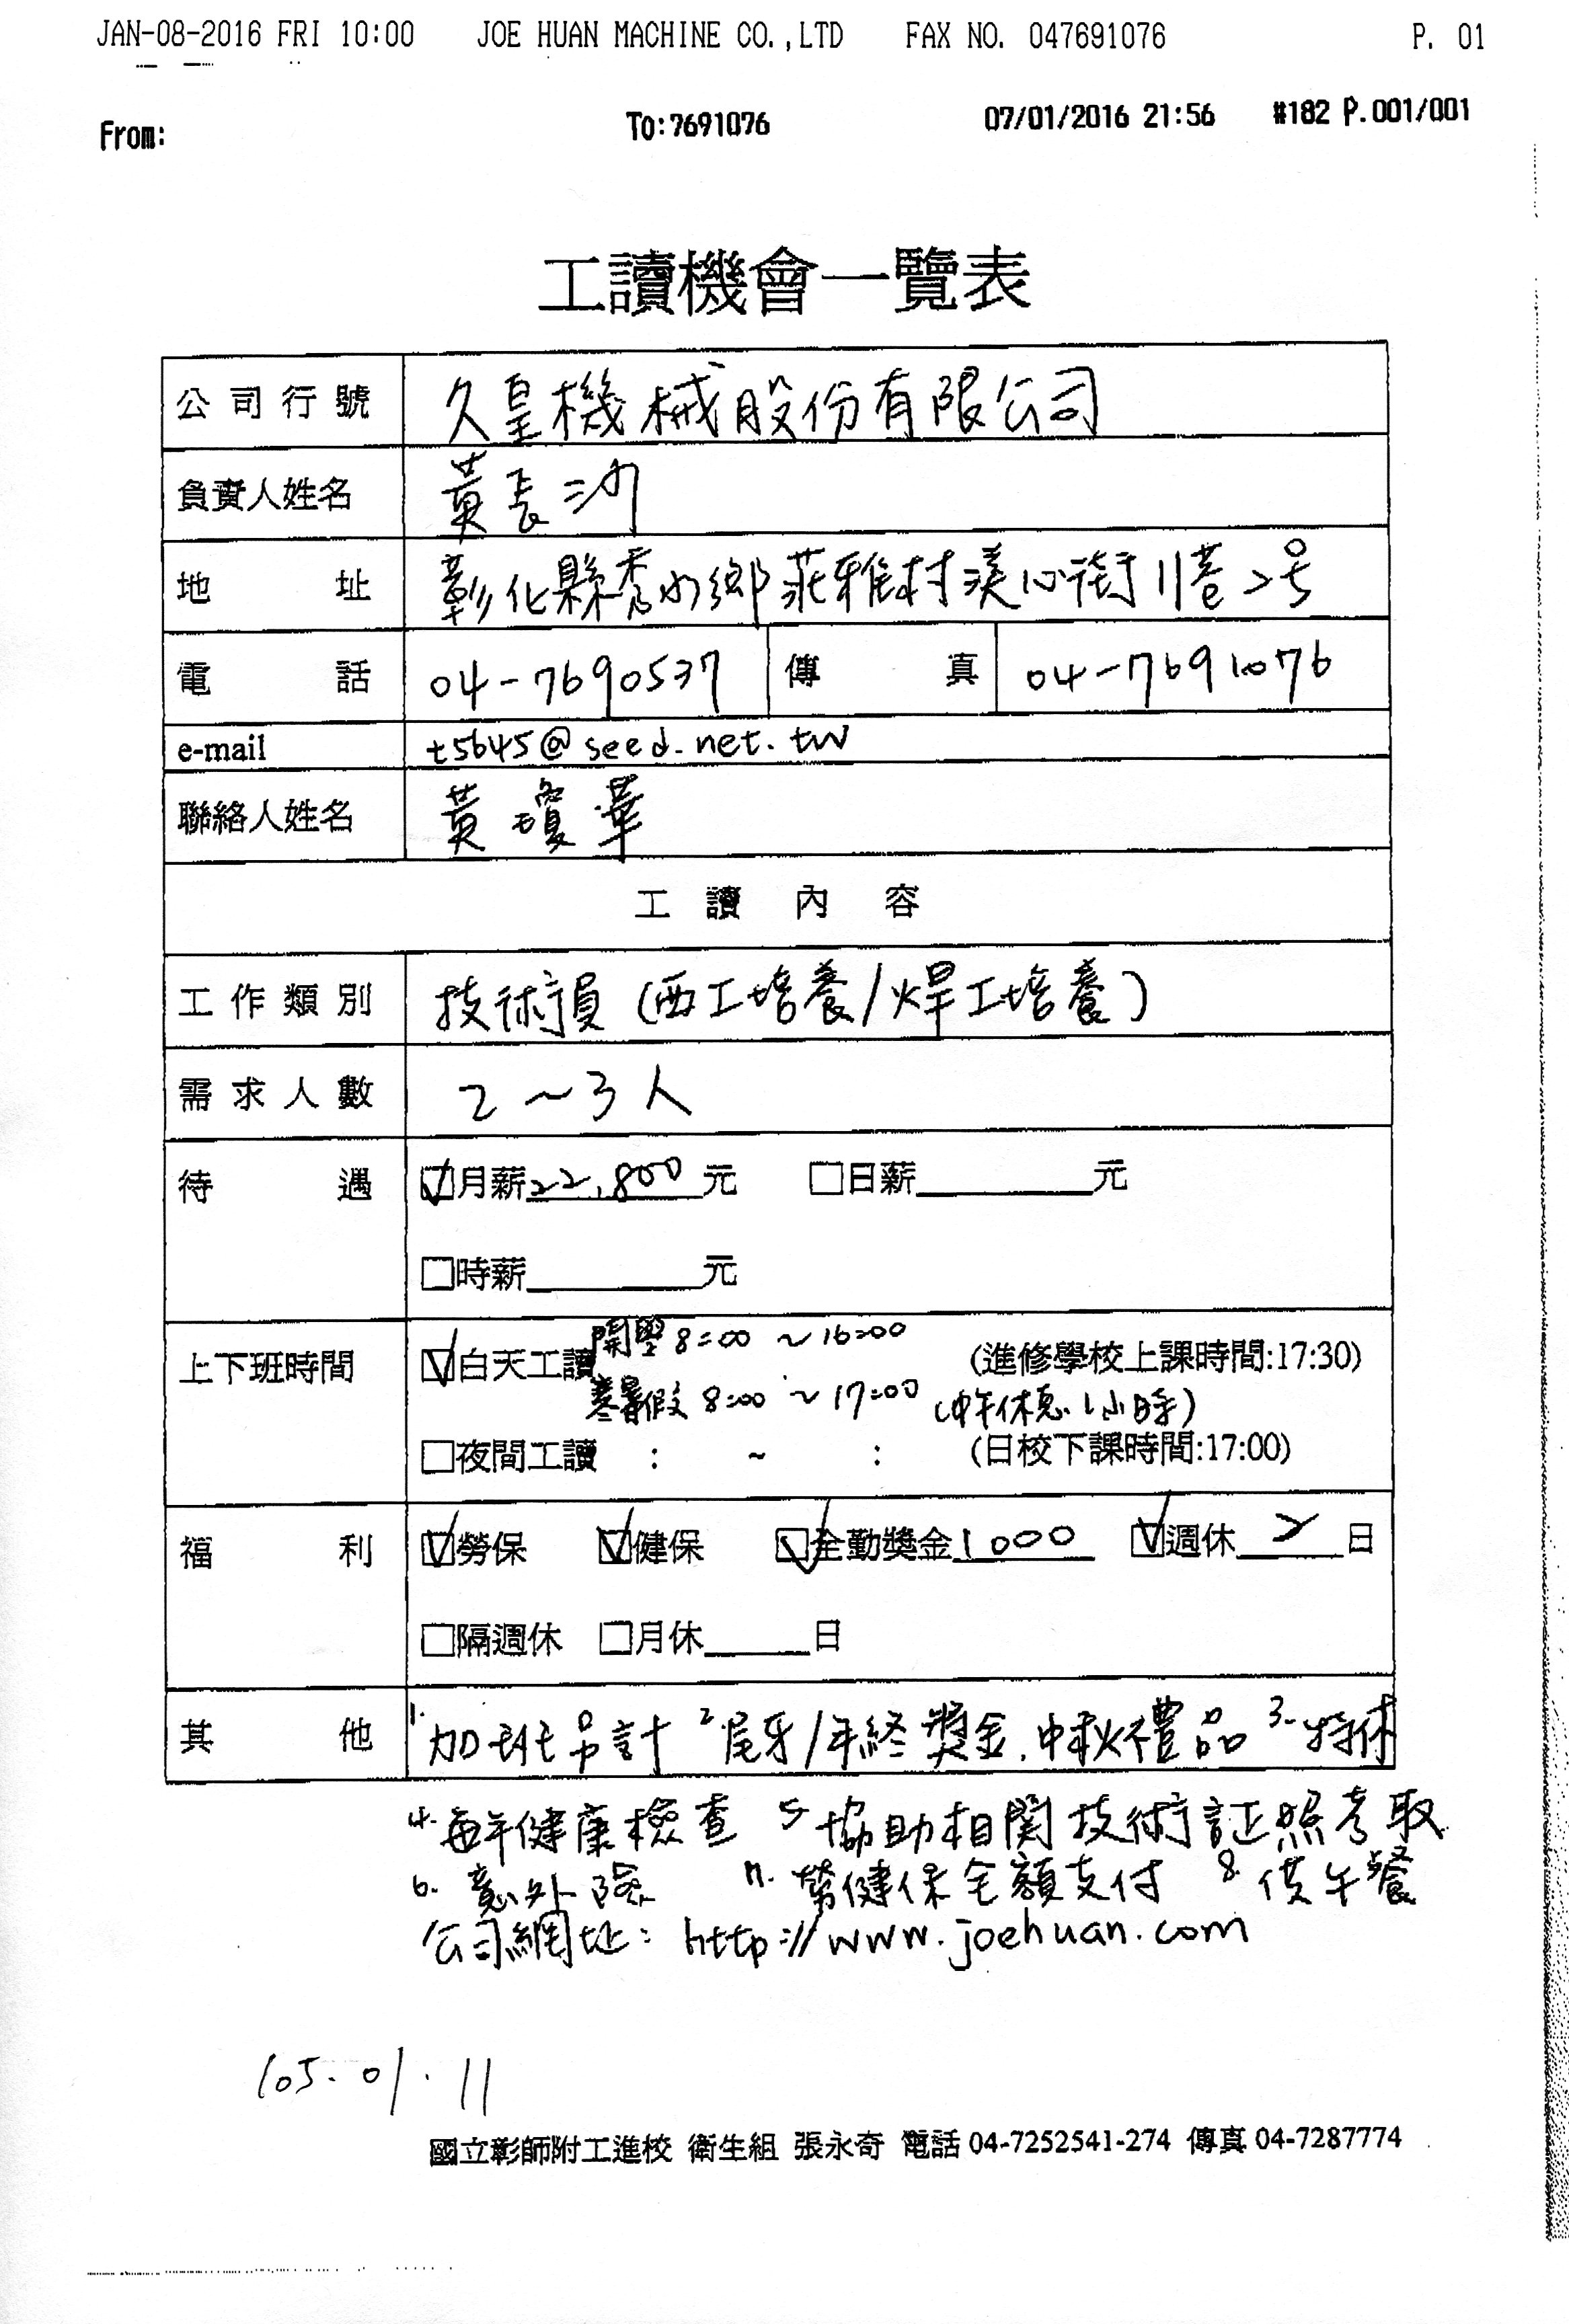 JAN-08-2016 FRI 10:00 JOE HUAN MACHINE CO.,LTD FAX NO. 047691076 P. 01
From: To:7691076 07/01/2016 21:56 #182 P.001/001
工讀機會一覽表
公司行號 久皇機械股份有限公司
負責人姓名 黃長沙
地址 彰化縣秀水鄉莊雅村溪心街11巷2号
電話 04-7690537 傳真 04-7691076
e-mail t5645@seed.net.tw
聯絡人姓名 黃瓊華
工讀內容
工作類別 技術員(西工培養/焊工培養)
需求人數 2~3人
待遇 ☑月薪22,800元 □日薪____元
□時薪____元
開學 8:00 ~16:00
上下班時間 ☑白天工讀 (進修學校上課時間:17:30)
寒暑假 8:00 ~ 17:00 (中午休息1小時)
□夜間工讀 : ~ : (日校下課時間:17:00)
福利 ☑勞保 ☑健保 ☑全勤獎金1000 ☑週休2日
□隔週休 □月休____日
其他 1.加班另計 2.尾牙/年終獎金.中秋禮品 3.特休
4.每年健康檢查 5.協助相関技術証照考取
6.意外險 7.勞健保全額支付 8.供午餐
公司網址:http://www.joehuan.com
105.01.11
國立彰師附工進校 衛生組 張永奇 電話 04-7252541-274 傳真 04-7287774